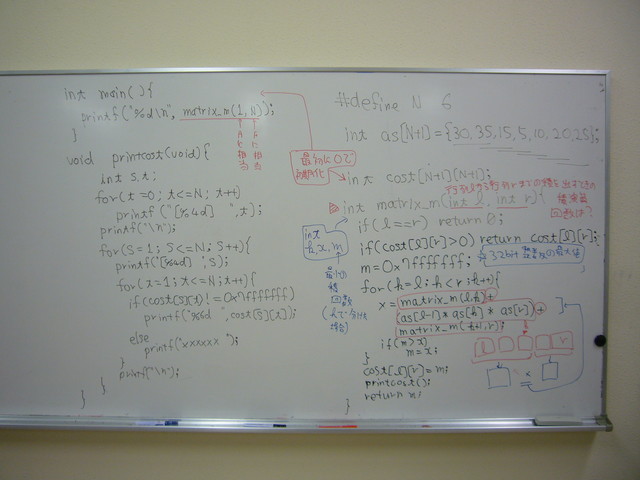 int main(){
printf("%d\n", matrix_m(1,
}
void printcost(void){
int s,t;
for(t=0; t<=N; t++)
printf("[%4d] ",t);
printf("\n");
for(S=1; S<=N; S++){
printf("[%4d]",S);
for(t=1;t<=N;t++){
if(cost[s][t]!=0x7fffffff)
printf("%6d ",cost[s][t]);
else
printf("xxxxxx ");
}
printf("\n");
}
}
最初に0で
初期化
#define N 6
int as[N+1]={30,35,15,5,10,20,25};
int cost[N+1][N+1];
int matrix_m(int l, int r){
if(l==r) return 0;
if(cost[l][r]>0) return cost[l][r];
m=0x7fffffff;
for(k=l;k<r;k++){
x=matrix_m(l,k)+
as[l-1]*as[k]*as[r]+
matrix_m(k+1,r);
if(m>x)
m=x;
}
cost[l][r]=m;
printcost();
return m;
}
int
k,x,m
回数
l r